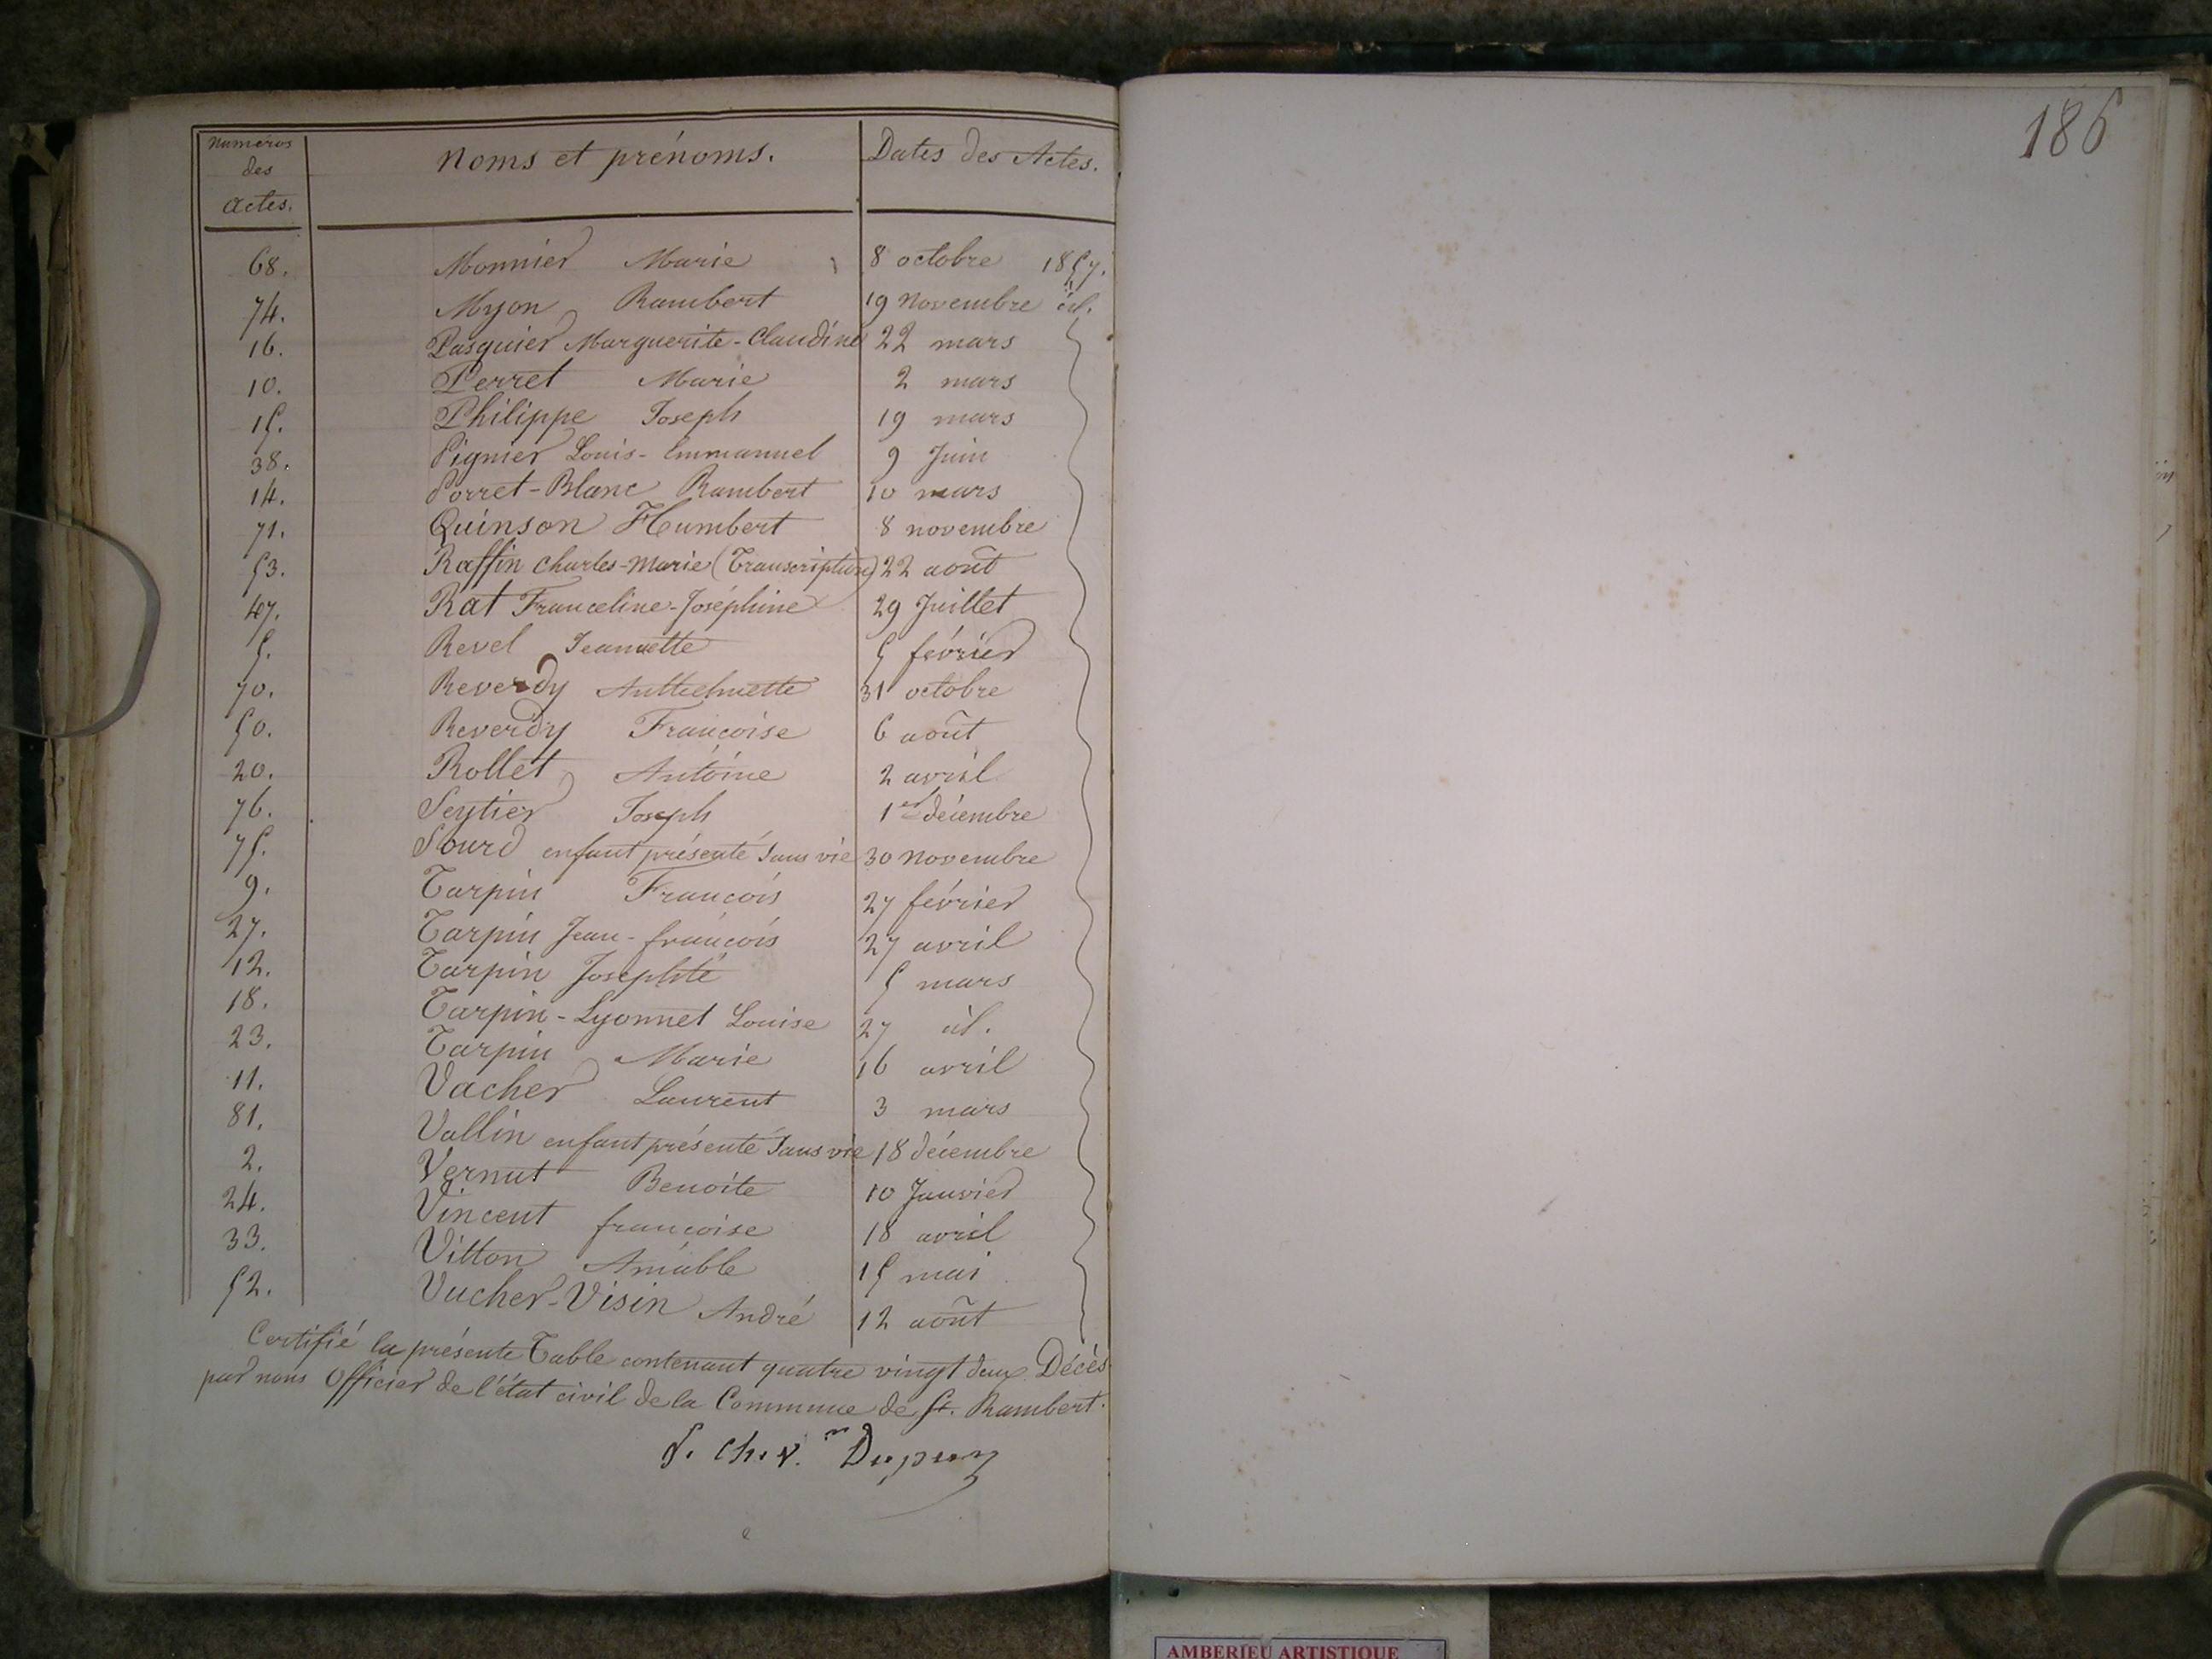 Numéros des Actes. Noms et prénoms. Dates des Actes.
68. Monnier Marie 8 octobre 1857.
74. Myon Rambert 19 Novembre id.
16. Pasquier Marguerite-Claudine 22 mars
10. Perret Marie 2 mars
15. Philippe Joseph 19 mars
38. Pignier Louis-Emmanuel 9 Juin
14. Porret-Blanc Rambert 10 mars
71. Quinson Humbert 8 novembre
53. Raffin Charles-Marie (Transcription) 22 août
47. Rat Franceline-Joséphine 29 Juillet
5. Revel Jeannette 5 février
70. Reverdy Anthelmette 31 octobre
50. Reverdy Françoise 6 août
20. Rollet Antoine 2 avril
76. Seytier Joseph 1er décembre
75. Sourd enfant présenté sans vie 30 Novembre
9. Tarpin François 27 février
27. Tarpin Jean-françois 27 avril
12. Tarpin Josephte 5 mars
18. Tarpin-Lyonnet Louise 27 id.
23. Tarpin Marie 16 avril
11. Vacher Laurent 3 mars
81. Vallin enfant présenté sans vie 18 décembre
2. Vernut Benoite 10 Janvier
24. Vincent françoise 18 avril
33. Vitton Amable 15 mai
52. Vucher-Visin André 12 août
Certifié la présente Table contenant quatre vingt deux Décès
par nous Officier de l'état civil de la Commune de St. Rambert.
Dupuy
186
AMBERIEU ARTISTIQUE